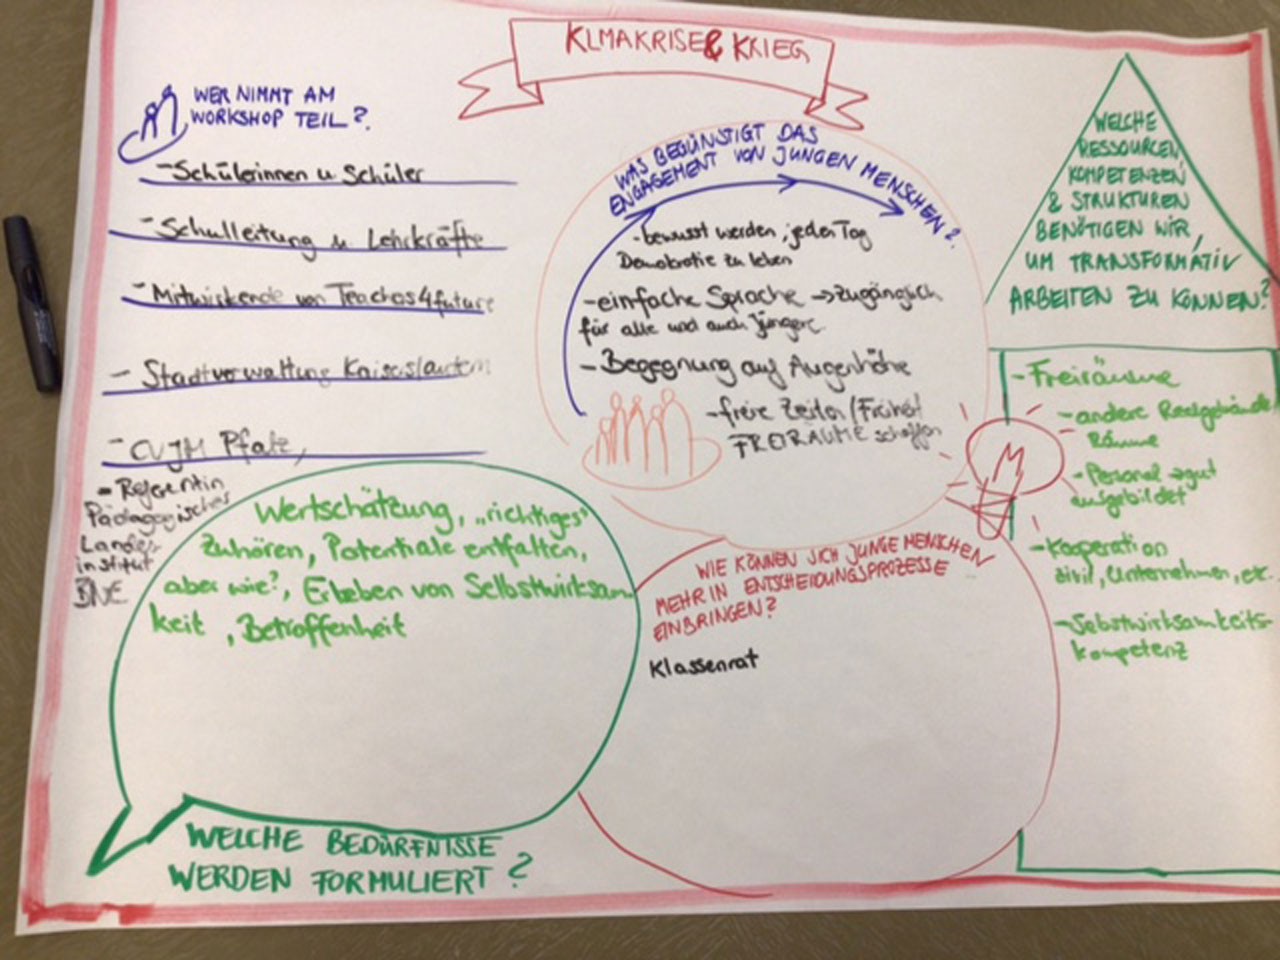 KLMAKRISE & KRIEG
WER NIMMT AM
WORKSHOP TEIL?
- Schülerinnen u. Schüler
- Schulleitung u. Lehrkräfte
- Mitwirkende von Teachers4future
- Stadtverwaltung Kaiserslautern
- CVJM Pfalz,
- Referentin
Pädagogisches
Landes-
institut
BNE
WAS BEGÜNSTIGT DAS
ENGAGEMENT VON JUNGEN MENSCHEN?
- bewusst werden, jeden Tag
Demokratie zu leben
- einfache Sprache → zugänglich
für alle und auch Jüngere
- Begegnung auf Augenhöhe
- freie Zeiten / Freiheit
FREIRÄUME schaffen
WELCHE
RESSOURCEN,
KOMPETENZEN
& STRUKTUREN
BENÖTIGEN WIR,
UM TRANSFORMATIV
ARBEITEN ZU KÖNNEN?
- Freiräume
- andere
Räume
- Personal → gut
ausgebildet
- Kooperation
zivil, Unternehmen, etc.
- Selbstwirksamkeits-
kompetenz
Wertschätzung, „richtiges"
Zuhören, Potentiale entfalten,
aber wie?, Erleben von Selbstwirksam
keit, Betroffenheit
WELCHE BEDÜRFNISSE
WERDEN FORMULIERT?
WIE KÖNNEN SICH JUNGE MENSCHEN
MEHR IN ENTSCHEIDUNGSPROZESSE
EINBRINGEN?
Klassenrat